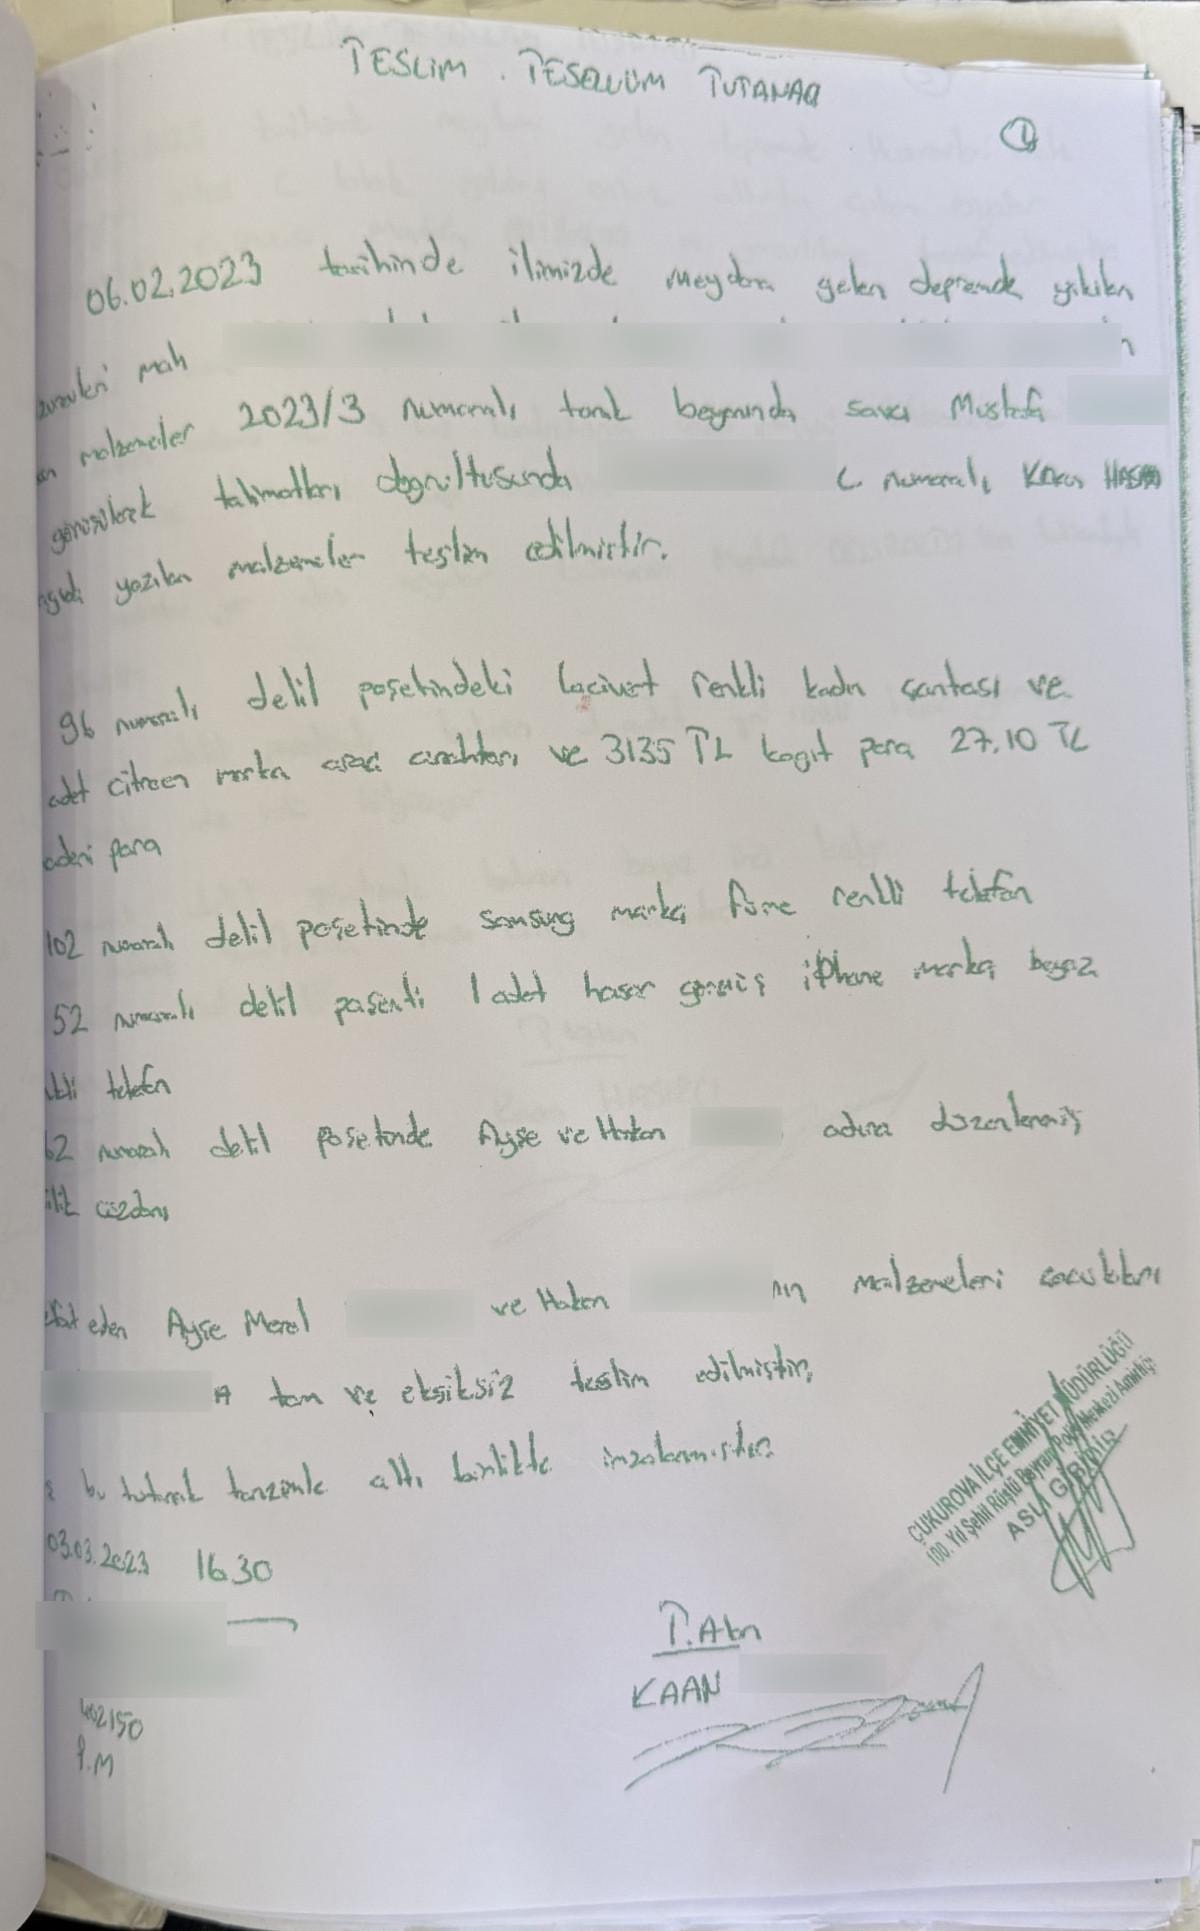 TESLİM . TESELLÜM TUTANAĞI
1
06.02.2023 tarihinde ilimizde meydana gelen depremde yıkılan
mah
malzemeler 2023/3 numaralı talimat savcı Mustafa
görüşülerek talimatları doğrultusunda numaralı
yazılan malzemeler teslim edilmiştir.
96 numaralı delil poşetindeki lacivert renkli kadın çantası ve
adet citroen marka araç anahtarı ve 3135 TL kağıt para 27.10 TL
para
102 numaralı delil poşetinde samsung marka füme renkli telefon
52 numaralı delil poşeti 1 adet hasar görmüş iphone marka beyaz
telefon
62 numaralı delil poşetinde Ayşe ve Hakan adına düzenlenmiş
cüzdanı
eden Ayşe Meral ve Hakan nın malzemeleri çocukları
A tam ve eksiksiz teslim edilmiştir.
bu tutanak tanzimle altı birlikte imzalanmıştır.
03.03.2023 16.30
T. Alan
KAAN
402150
P.M
ÇUKUROVA İLÇE EMNİYET MÜDÜRLÜĞÜ
100. Yıl Şehit Rüştü Bayram Polis Merkezi Amirliği
ASLI GİBİDİR